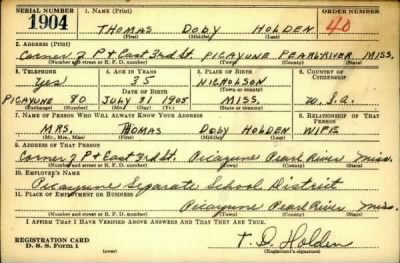 SERIAL NUMBER 1. NAME (Print) ORDER NUMBER
1904 THOMAS DOBY HOLDEN 40
(First) (Middle) (Last)
2. ADDRESS (Print)
Corner of P & East 3rd St. PICAYUNE PEARL RIVER MISS.
(Number and street or R. F. D. number) (Town) (County) (State)
3. TELEPHONE 4. AGE IN YEARS 5. PLACE OF BIRTH 6. COUNTRY OF CITIZENSHIP
Yes 35 NICHOLSON
DATE OF BIRTH (Town or county)
PICAYUNE 80 JULY 31 1905 MISS. U.S.A.
(Exchange) (Number) (Mo.) (Day) (Yr.) (State or country)
7. NAME OF PERSON WHO WILL ALWAYS KNOW YOUR ADDRESS 8. RELATIONSHIP OF THAT PERSON
MRS. THOMAS DOBY HOLDEN WIFE
(Mr., Mrs., Miss) (First) (Middle) (Last)
9. ADDRESS OF THAT PERSON
Corner of P & East 3rd St. Picayune Pearl River Miss.
(Number and street or R. F. D. number) (Town) (County) (State)
10. EMPLOYER'S NAME
Picayune Separate School District
11. PLACE OF EMPLOYMENT OR BUSINESS
Picayune Pearl River Miss.
(Number and street or R. F. D. number) (Town) (County) (State)
I AFFIRM THAT I HAVE VERIFIED ABOVE ANSWERS AND THAT THEY ARE TRUE.
REGISTRATION CARD
D. S. S. Form 1 (over) T. D. Holden
(Registrant's signature)